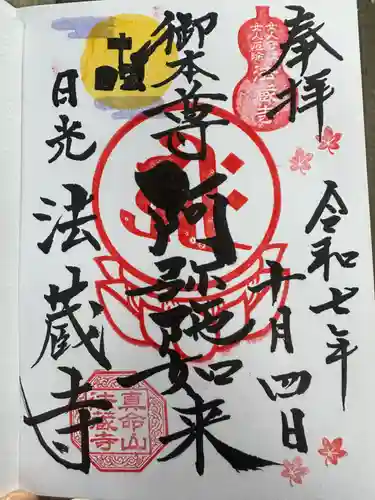 奉拝
令和七年
十月四日
御本尊
阿弥陀如来
日光
法蔵寺
真命山
法蔵寺